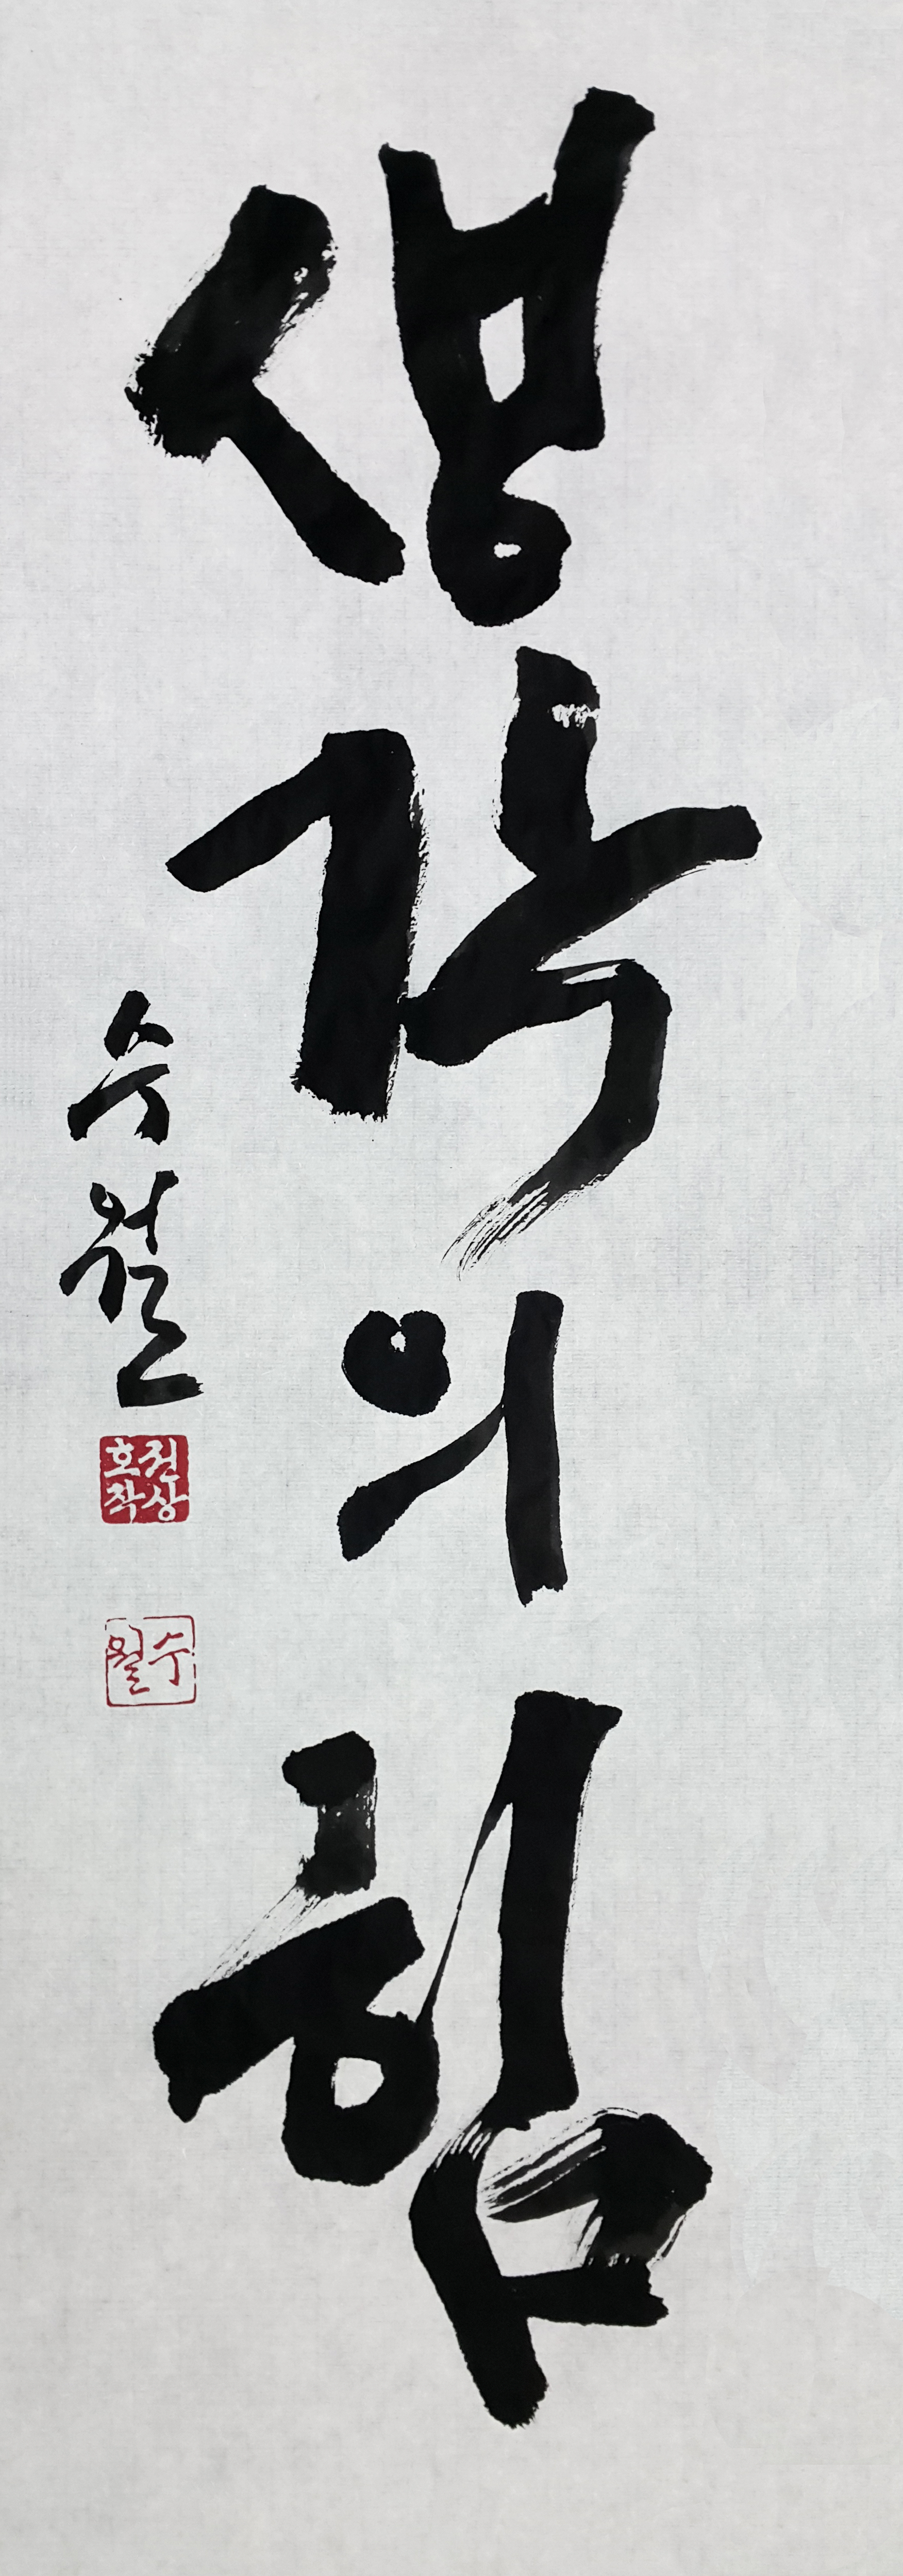 생각의힘
수월
권상
호작
수월